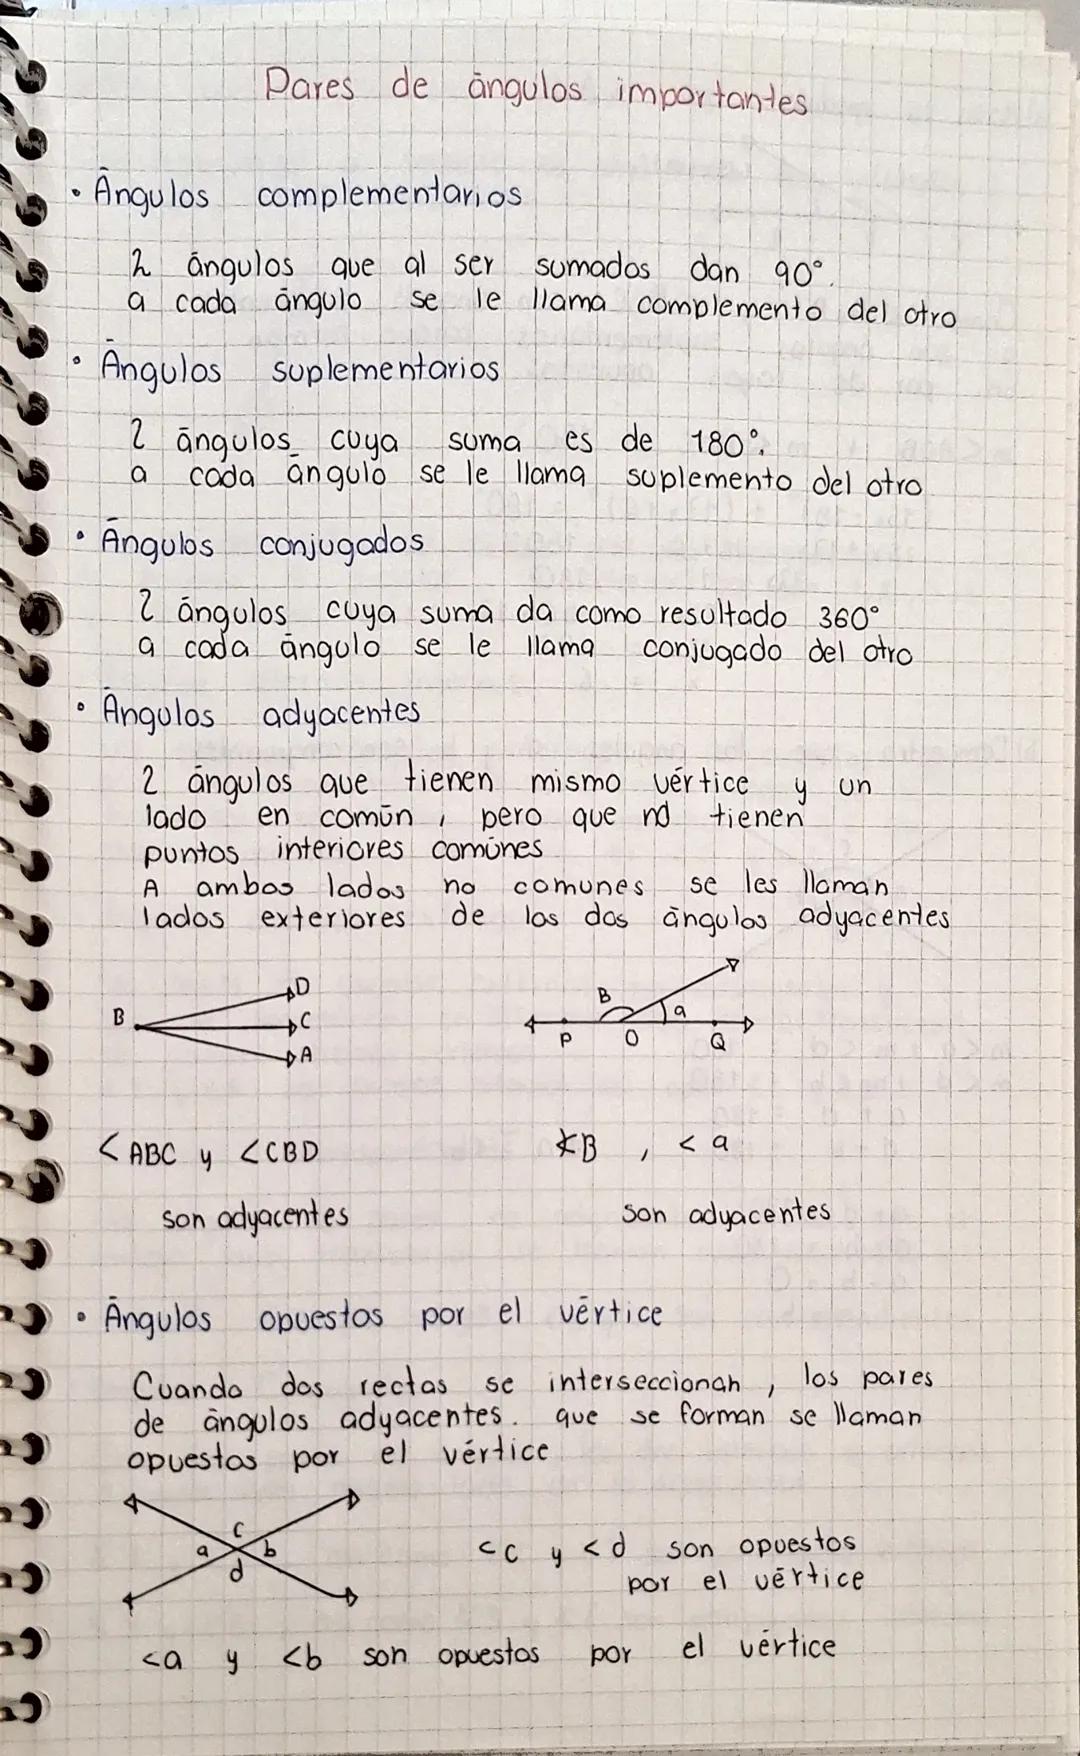 Pares de ángulos importantes
• Ángulos complementarios
2 ángulos que al ser sumados dan 90°.
a cada ángulo se le llama complemento del otro
• Ángulos suplementarios
2 ángulos cuya suma es de 180°.
a cada ángulo se le llama suplemento del otro
• Ángulos conjugados
2 ángulos cuya suma da como resultado 360°
a cada ángulo se le llama conjugado del otro
• Ángulos adyacentes
2 ángulos que tienen mismo vértice y un
lado en común, pero que no tienen
puntos interiores comúnes
A ambos lados no comunes se les llaman
lados exteriores de los dos ángulos adyacentes
B D C A
B a P O Q
<ABC y <CBD
∢B , <a
son adyacentes
son adyacentes
• Ángulos opuestos por el vértice
Cuando dos rectas se interseccionan, los pares
de ángulos adyacentes. que se forman se llaman
opuestos por el vértice
a c b d
<c y <d son opuestos
por el vértice
<a y <b son opuestos por el vértice